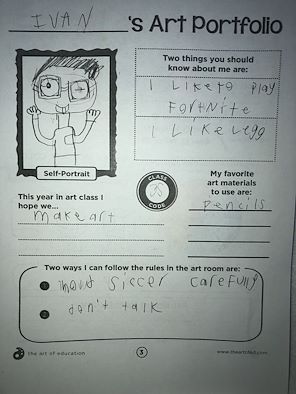 IVAN 's Art Portfolio
Two things you should
know about me are:
I Like to play
FORTNite
I Like Lego
Self-Portrait
This year in art class I
hope we...
make art
CLASS
CODE
My favorite
art materials
to use are:
pencils
Two ways I can follow the rules in the art room are:
1 siccer carefully
2 don't talk
the art of education
3